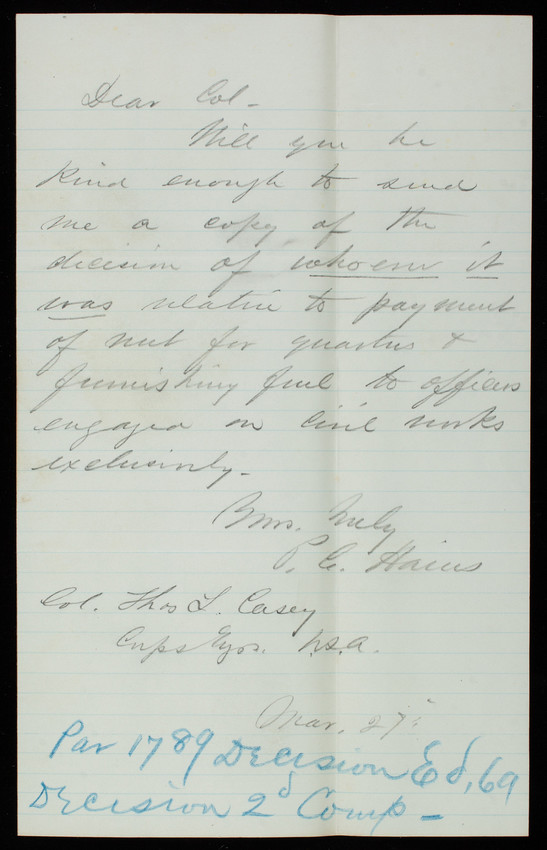 Dear Col -
Will you be
kind enough to send
me a copy of the
decision of whoever it
was relative to payment
of rent for quarters &
furnishing fuel to officers
engaged on civil works
exclusively -
Yours truly
P. C. Hains
Col. Thos L. Casey
Corps Engrs. U.S.A.
Mar. 27:
Par 1789 Decision Ed, 69
Decision 2d Comp -